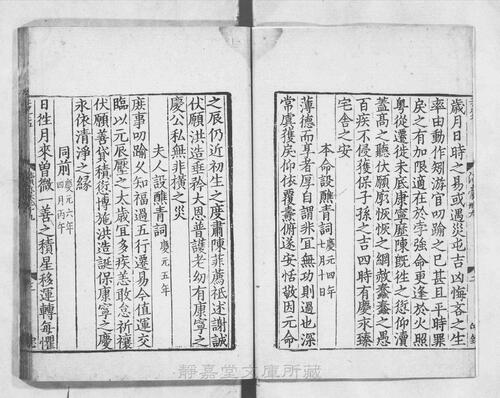 歲月日時之易或遇災屯吉凶悔吝之生
率由動作矧游官叨踰之已甚且平時累
戾之有加限適在於孛強命更逢於火照
粵從遷徙未底康寧歷陳旣往之愆仰瀆
蓋高之聽伏願廓恢恢之網赦蠢蠢之愚
百疾不侵獲保子孫之吉四時有慶求臻
宅舍之安
本命設醮青詞慶元四年七月十四日
薄德而尊者厚自謂非宜無功則過也深
常虞獲戾仰依覆燾俯遂安恬敬因元命
之辰仍近初生之度肅陳菲薦祗述謝誠
伏願洪造垂矜大恩普護老幼有康寧之
慶公私無非橫之災
夫人設醮青詞慶元五年
庶事叨踰久知福過五行遷易今值運交
臨以元辰壓之太歲宜多疾恙敢怠祈禳
伏願善貸積愆博施洪造誕保康寧之慶
永依清淨之緣
同前慶元六年四月丙午
日往月來曾微一善之積星移運轉每懼
靜嘉堂文庫所藏